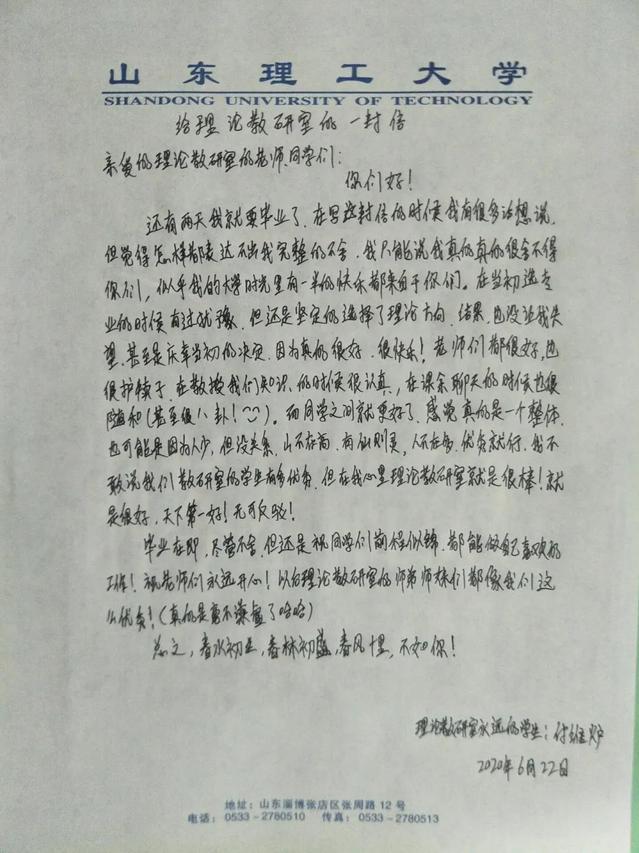 山东理工大学
SHANDONG UNIVERSITY OF TECHNOLOGY
给理论教研室的一封信
亲爱的理论教研室的老师、同学们：
你们好！
还有两天我就要毕业了，在写这封信的时候我有很多话想说，
但觉得怎样都表达不出我完整的不舍，我只能说我真的真的很舍不得
你们，似乎我的大学时光里有一半的快乐都来自于你们。在当初选专
业的时候有过犹豫，但还是坚定的选择了理论方向，结果，也没让我失
望，甚至是庆幸当初的决定，因为真的很好，很快乐！老师们都很好，也
很护犊子，在教授我们知识的时候很认真，在课余聊天的时候也很
随和（甚至很八卦！）。而同学之间就更好了，感觉真的是一个整体，
也可能是因为人少，但没关系，山不在高，有仙则灵，人不在多，优负就行，我不
敢说我们教研室的学生有多优秀，但在我心里理论教研室就是很棒！就
是很好，天下第一好！无可反驳！
毕业在即，尽管不舍，但还是祝同学们前程似锦，都能做自己喜欢的
工作！祝老师们永远开心！以后理论教研室的师弟师妹们都像我们这
么优秀！（真的是毫不谦虚了哈哈）
总之，春水初生，春林初盛，春风十里，不如你！
理论教研室永远的学生：付
2020年6月22日
地址：山东淄博张店区张周路 12 号
电话：0533－2780510 传真：0533－2780513